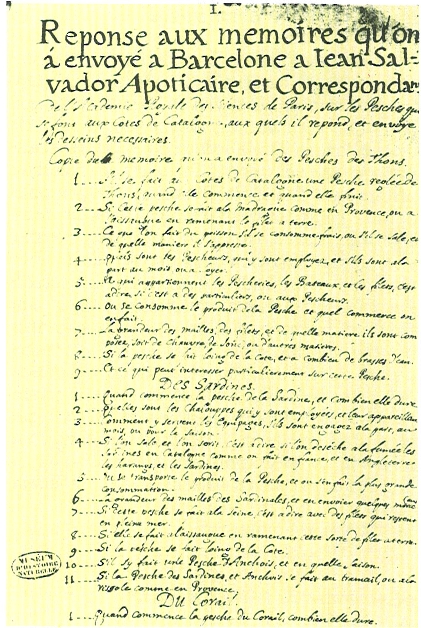 1.
Reponse aux memoires qu'on
á envoyé a Barcelone a Iean Sal-
vador Apoticaire, et Correspondan
De l'Academie Royale des Sciences de Paris, sur les Pesches qui
se font aux Côtes de Catalogne, aux quels il repond, et envoye
les desseins necessaires.
Copie de la memoire envoyé des Pesches des Thons.
1 S'il se fait aux Côtes de Catalogne une Pesche reglée de
Thons, quand elle commence, et quand elle finit.
2 Si cette pesche se fait a la madrague comme en Provence, ou a
l'issaugue en ramenant le filet a terre.
3 Ce que l'on fait du poisson, s'il se consomme frais, ou s'il se sale, et
de quelle maniere il s'appreste.
4 quels sont les Pescheurs, qui y sont employez, et s'ils sont a la
part au mois ou a
5 A qui appartiennent les Pescheries, les Bateaux, et les filets, c'est
adire si c'est a des particuliers, ou aux Pescheurs.
6 Ou se consomme le produit de la Pesche et quel commerce on
en fait.
7 La grandeur des mailles, des filets, et de quelle matiere ils sont com
posez, soit de chanvre, de ou d'autres matieres.
8 Si la pesche se fait loing de la Cote, et a combien de brasses d'eau.
9 Et ce qui peut interesser particulierement sur cette Pesche.
DES Sardines.
1 Quand commence la pesche de la Sardine, et combien elle dure.
2 Quelles sont les chalouppes qui y sont employées, et leur appareillem
3 Comment y servent les Equipages, s'ils sont engagez a la part, au
mois, ou pour la saison.
4 Si l'on sale et l'on sorit, c'est adire si l'on deseche a la fumée les
sardines en Catalogne comme on fait en france, et en Angleterre
les harangs, et les Sardines.
5 Ou se transporte le produit de la Pesche, et ou s'en fait la plus grande
consommation.
6 La grandeur des mailles des Sardinales, et en envoier quelques morc
7 Si cette pesche se fait a la seine, c'est adire avec des filets qui
en pleine mer.
8 Si elle se fait a l'issaugue en ramenant cette sorte de filet a terre.
9 Si la pesche se fait loing de la Cote.
10 S'il s'y fait une Pesche d'Anchois, et en quelle saison.
11 Si la Pesche des Sardines, et Anchois se fait au tramail, ou a la
rissole comme en Provence.
DU Corail.
1 Quand commence la pesche du Corail, combien elle dure.
MUSÉUM
D'HISTOIRE
NATURELLE